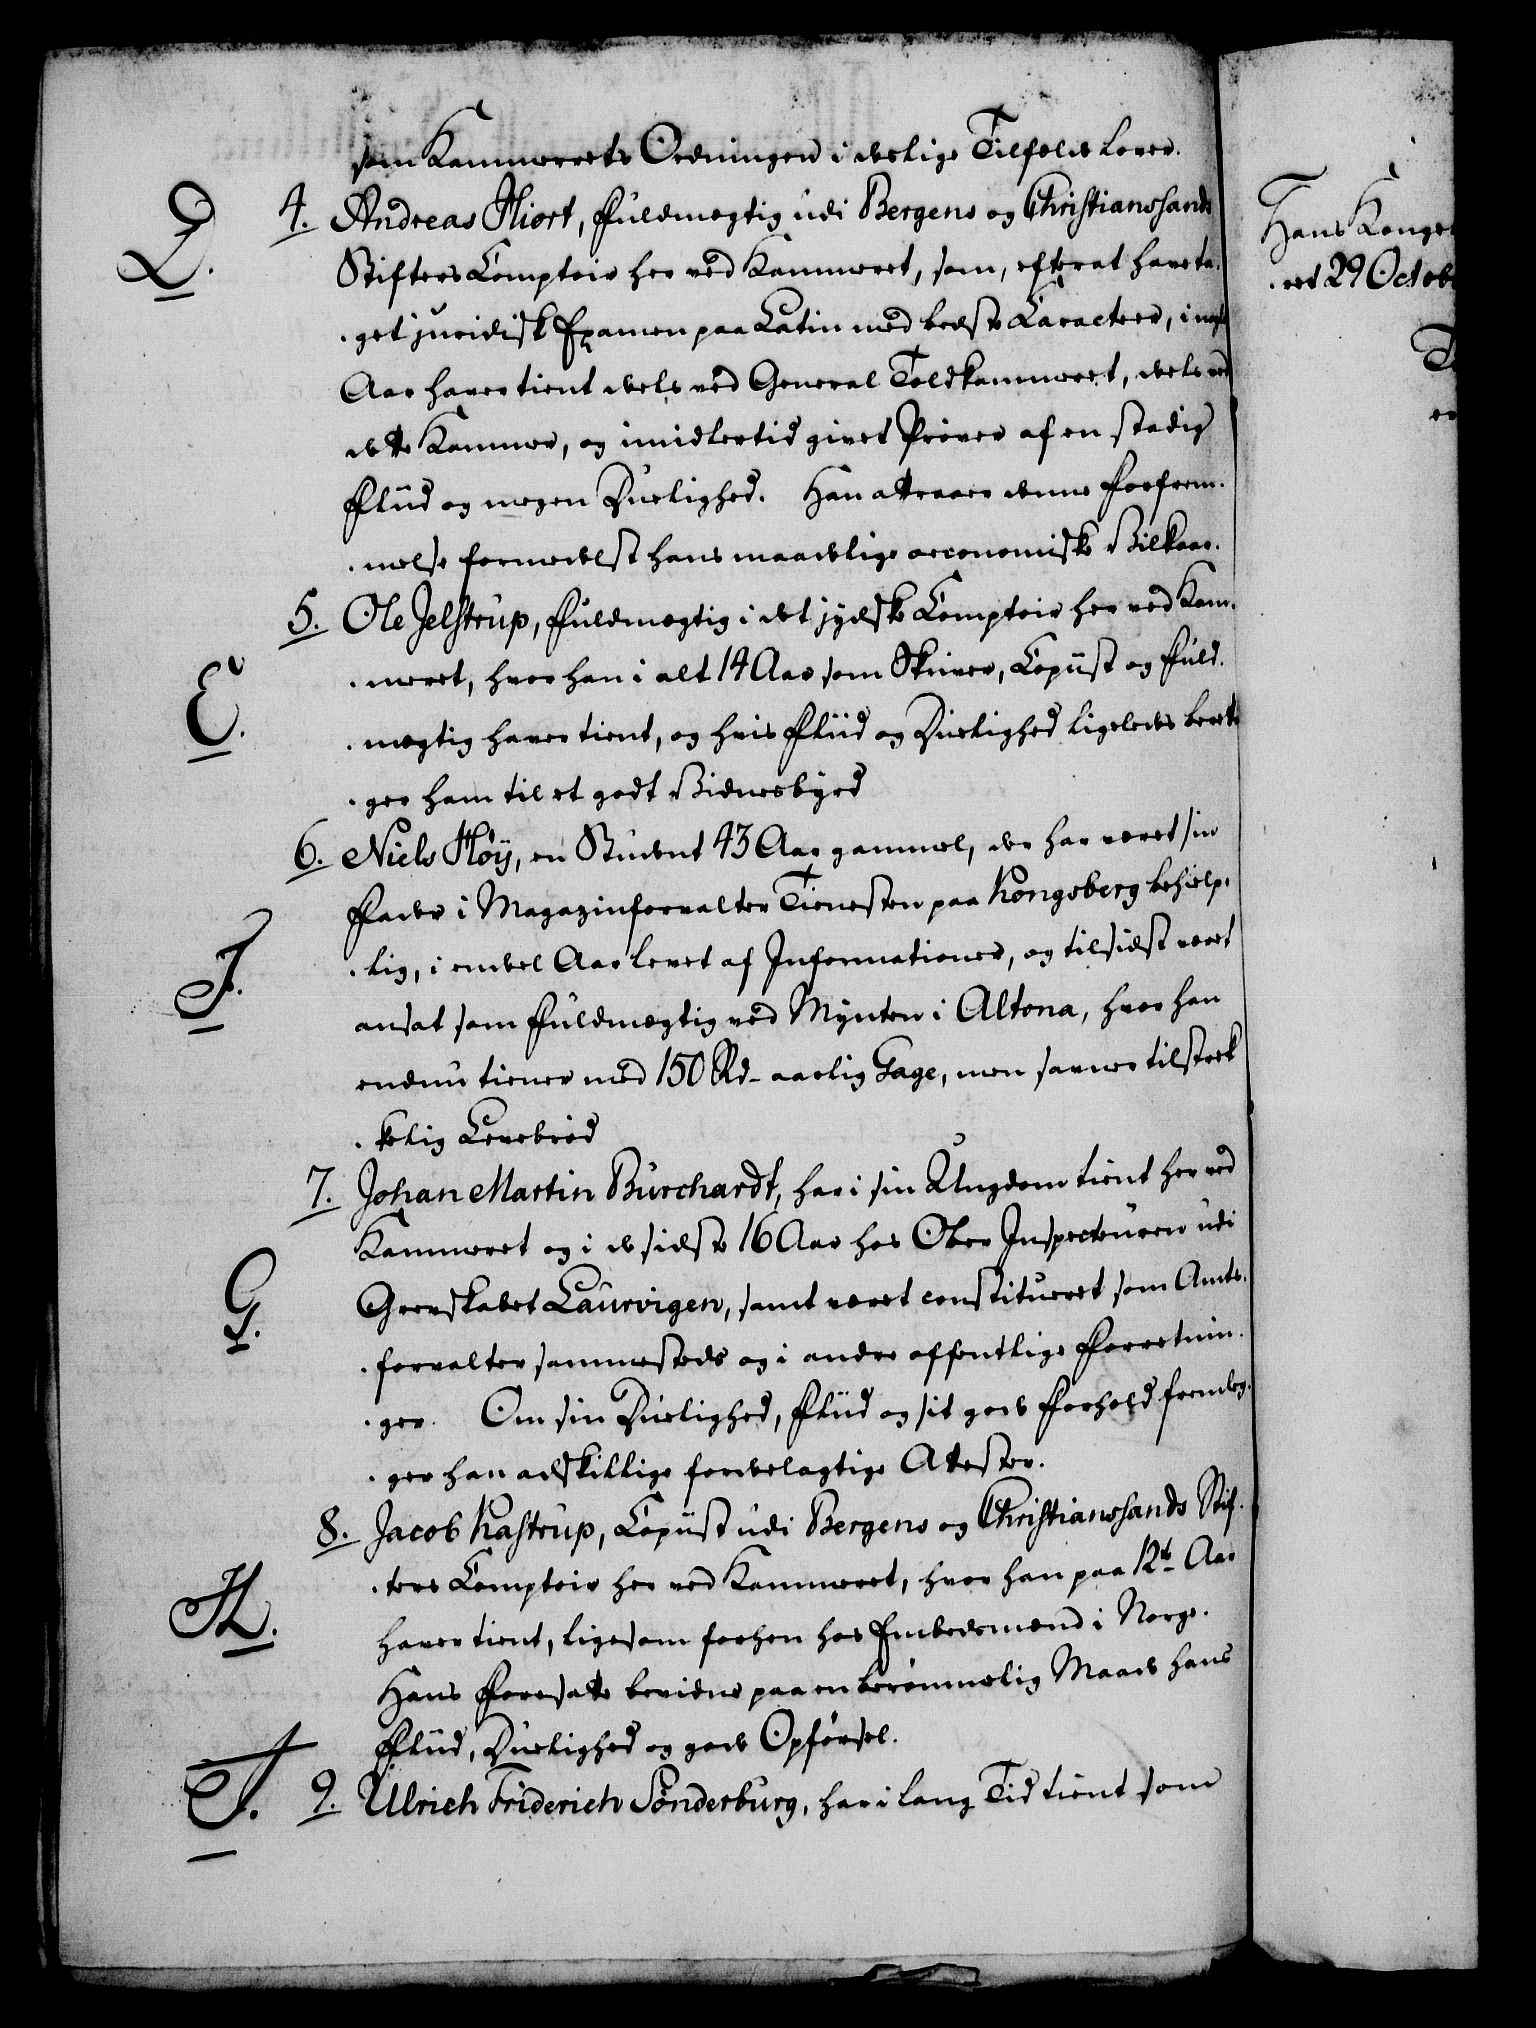 som Kammerets Ordningen i deslige Tilfelde lover.
D. 4. Andreas Hiort, Fuldmægtig udi Bergens og Christianssands
Stifters Comptoir her ved Kammeret, som, efterat have ta-
get juridisk Examen paa Latin med bedste Caracteer, i
Aar haver tient deels ved General Toldkammeret, deels ved
dette Kammer, og imidlertid givet Prøver af en stadig
Fliid og megen Duelighed. Han attraaer denne Forfrem-
melse formedelst hans maadelige oeconomiske Vilkaar.
E. 5. Ole Jelstrup, Fuldmægtig i det jydske Comptoir her ved Kam-
meret, hvor han i alt 14 Aar som Skriver, Copiist og Fuld-
mægtig haver tient, og hvis Fliid og Duelighed ligeledes
ger ham til et godt Vidnesbyrd
F. 6. Niels Høÿ, en Student 43 Aar gammel, der har været sin
Fader i Magazinforvalter Tienesten paa Kongsberg behielp-
lig, i endeel Aar levet af Informationer, og tilsidst været
ansat som Fuldmægtig ved Mynten i Altona, hvor han
endnu tiener med 150 Rd. aarlig Gage, men savner tilstræk
kelig Levebrød
G. 7. Johan Martin Burchardt, har i sin Ungdom tient her ved
Kammeret og i de sidste 16 Aar hos Ober Inspecteuren udi
Grevskabet Laurvigen, samt været constitueret som Amts-
forvalter sammesteds og i andre offentlige Forretnin-
ger. Om sin Duelighed, Fliid og sit gode Forhold fremleg-
ger han adskillige fordelagtige Attester.
H. 8. Jacob Kastrup, Copiist udi Bergens og Christianssands Stif-
ters Comptoir her ved Kammeret, hvor han paa 12te Aar
haver tient, ligesom forhen hos Embedsmænd i Norge.
Hans Foresatte bevidne paa en berømmelig Maade hans
Fliid, Duelighed og gode Opførsel.
J. 9. Ulrich Friderich Sønderburg, har i lang Tid tient som
Hans Konge
29 Octob